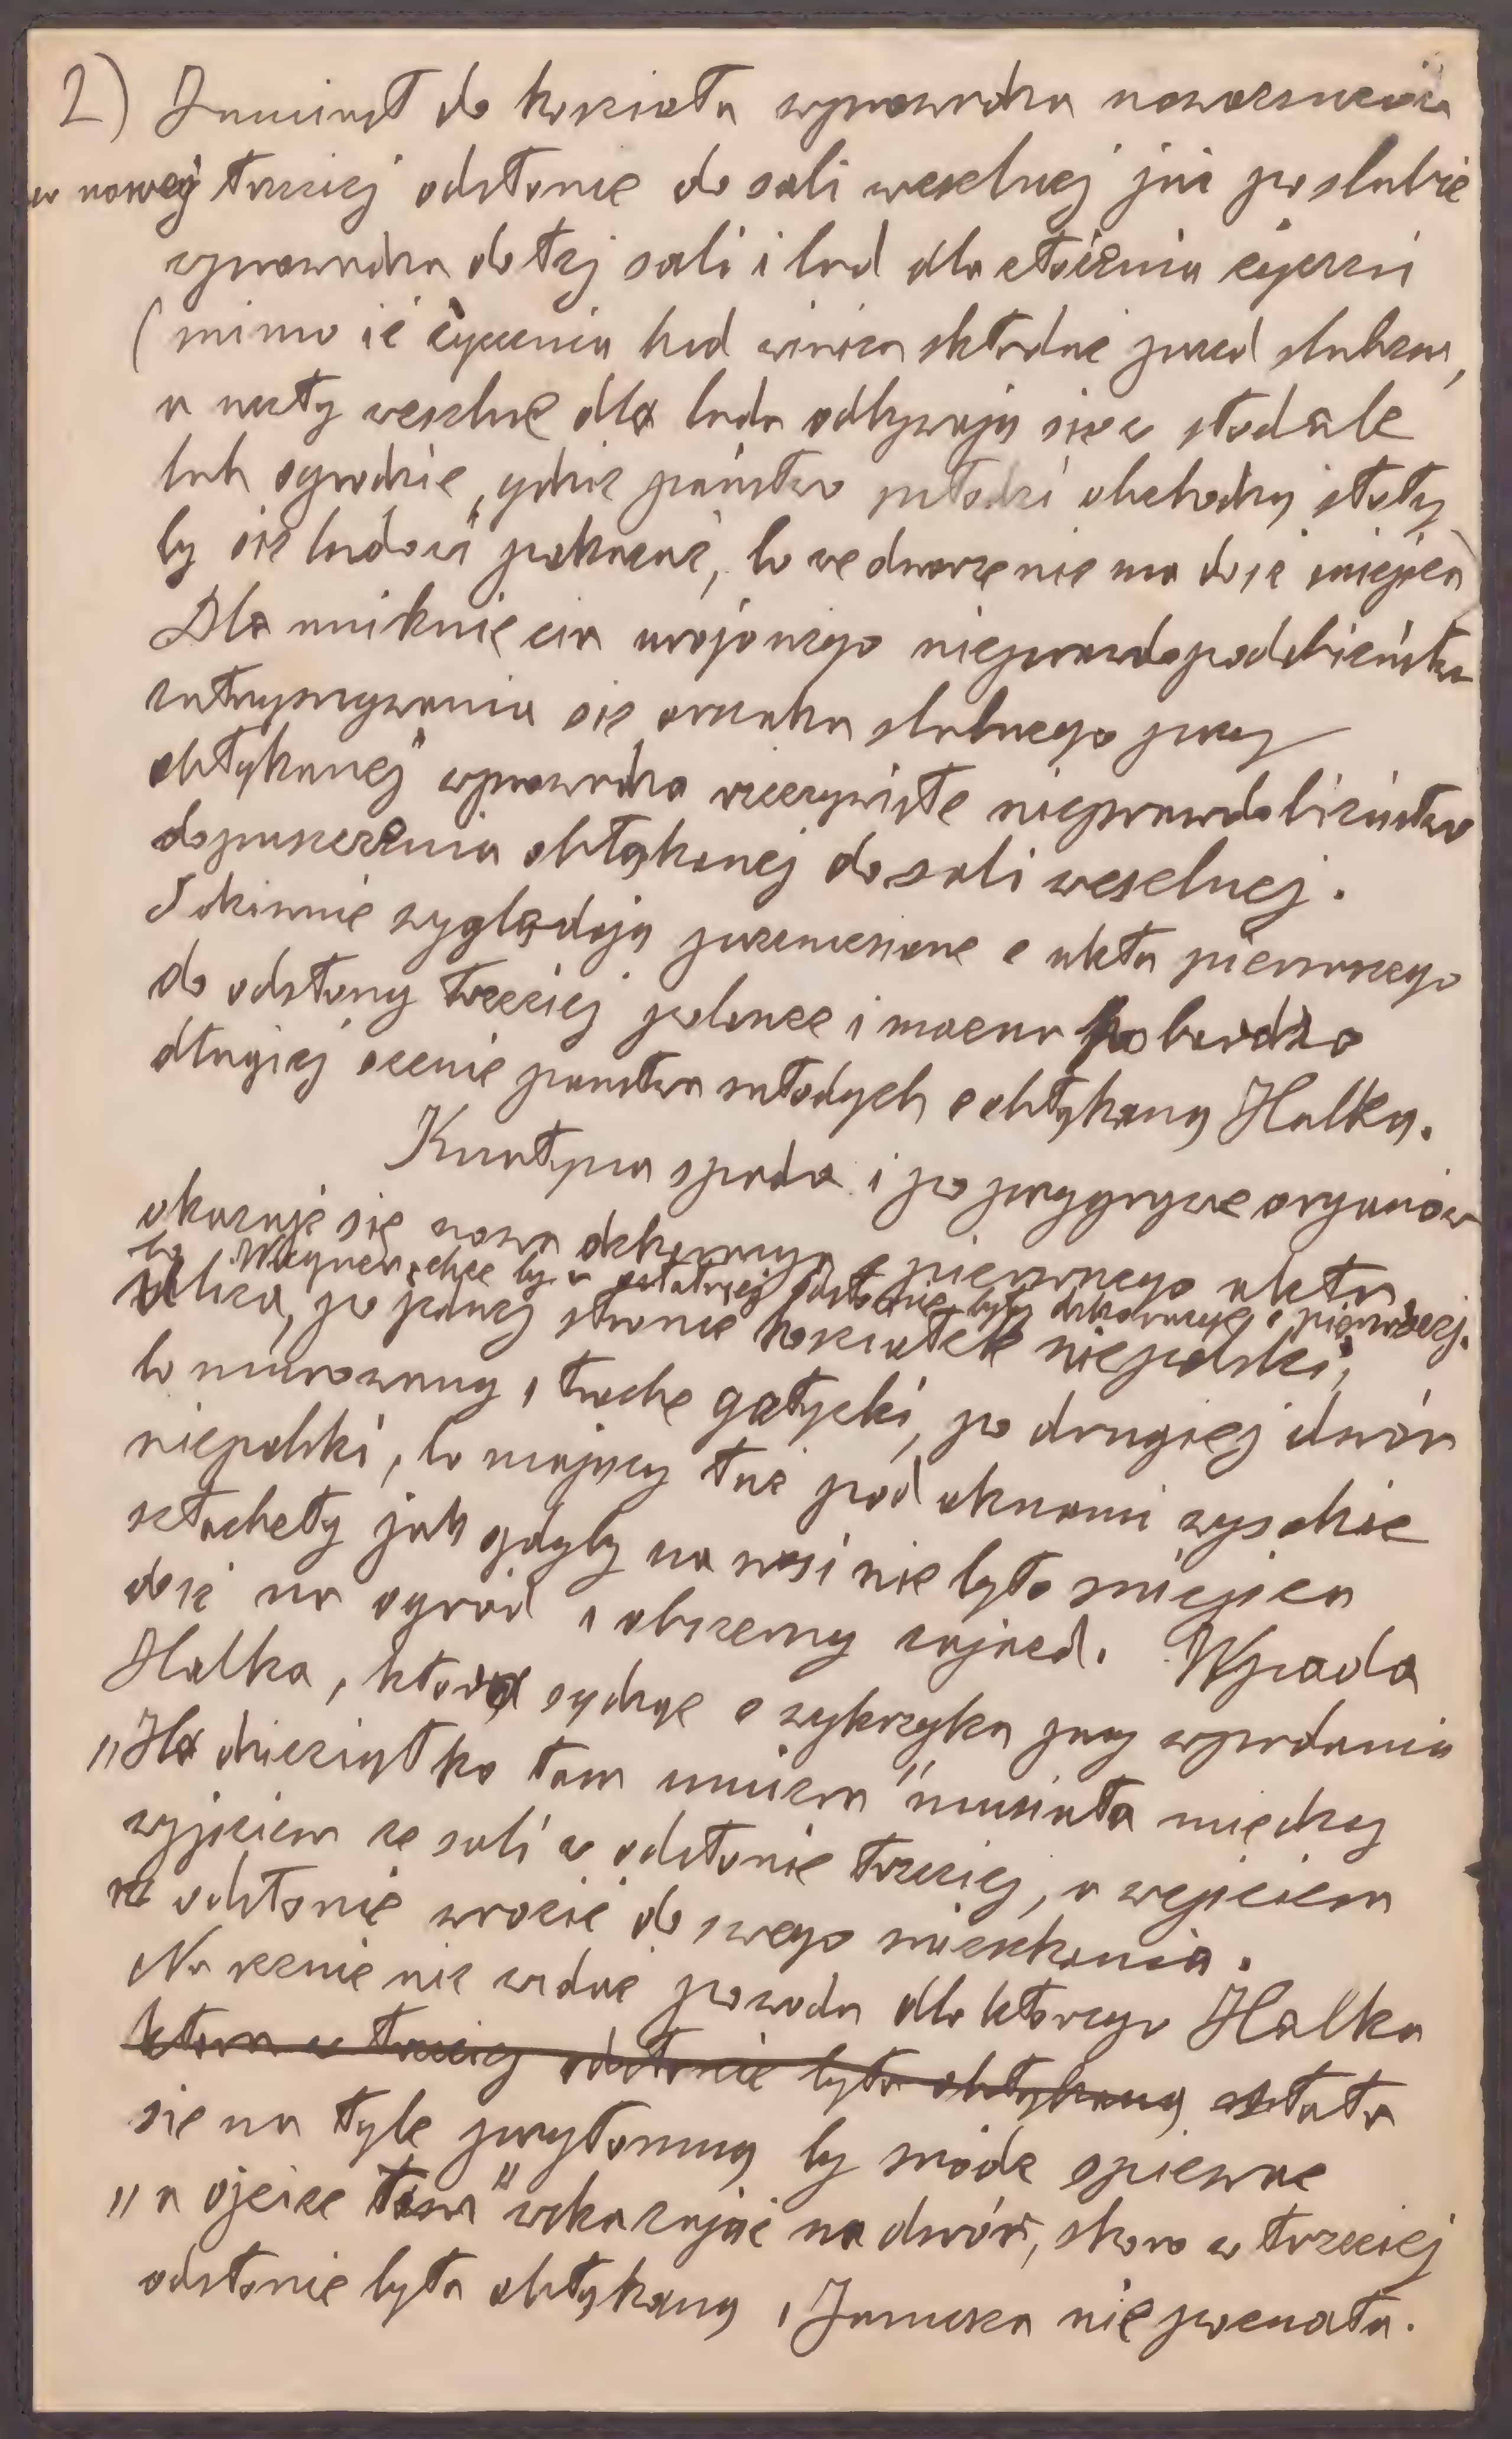 2) Zamiast do kościoła wprowadza nowoczesność
w nowej trzeciej odsłonie do sali weselnej już po ślubie
wprowadza do tej sali i lud dla złożenia życzeń
(mimo iż życzenia lud winien składać przed ślubem,
a uczty weselne dla ludu odbywają się w stodole
lub ogrodzie, gdzie państwo młodzi obchodzą stoły
by się ludowi pokazać, bo we dworze nie ma dość miejsca)
Dla uniknięcia urojonego nieprawdopodobieństwa
zatrzymywania się orszaku ślubnego przy
obłąkanej wprowadza rzeczywiste nieprawdobieństwo
dopuszczenia obłąkanej do sali weselnej.
I dziwnie wyglądają przeniesione z aktu pierwszego
do odsłony trzeciej polonez i mazur po bardzo
długiej scenie państwa młodych z obłąkaną Halką.
Kurtyna spada i po przygrywce organów
okazuje się nowa dekoracja z pierwszego aktu
bo Wagner chce by w ostatniej odsłonie były dekoracje z pierwszej.
Ulica, po jednej stronie kościółek niepolski,
bo murowany, trochę gotycki, po drugiej dwór
niepolski, bo mający tuż pod oknami wysokie
sztachety jak gdyby na wsi nie było miejsca
dość na ogród i obszerny zajazd. Wpada
Halka, która sądząc z wykrzyku przy wpadaniu
„Ha dzieciątko tam umiera" musiała między
wyjściem ze sali w odsłonie trzeciej, a wejściem
w odsłonie wrócić do swego mieszkania.
Na scenie nie widać powodu dla którego Halka
która w trzeciej odsłonie była obłąkaną stała
się na tyle przytomną by módz śpiewać
„a ojciec tam" wskazując na dwór, skoro w trzeciej
odsłonie była obłąkaną, Janusza nie poznała.